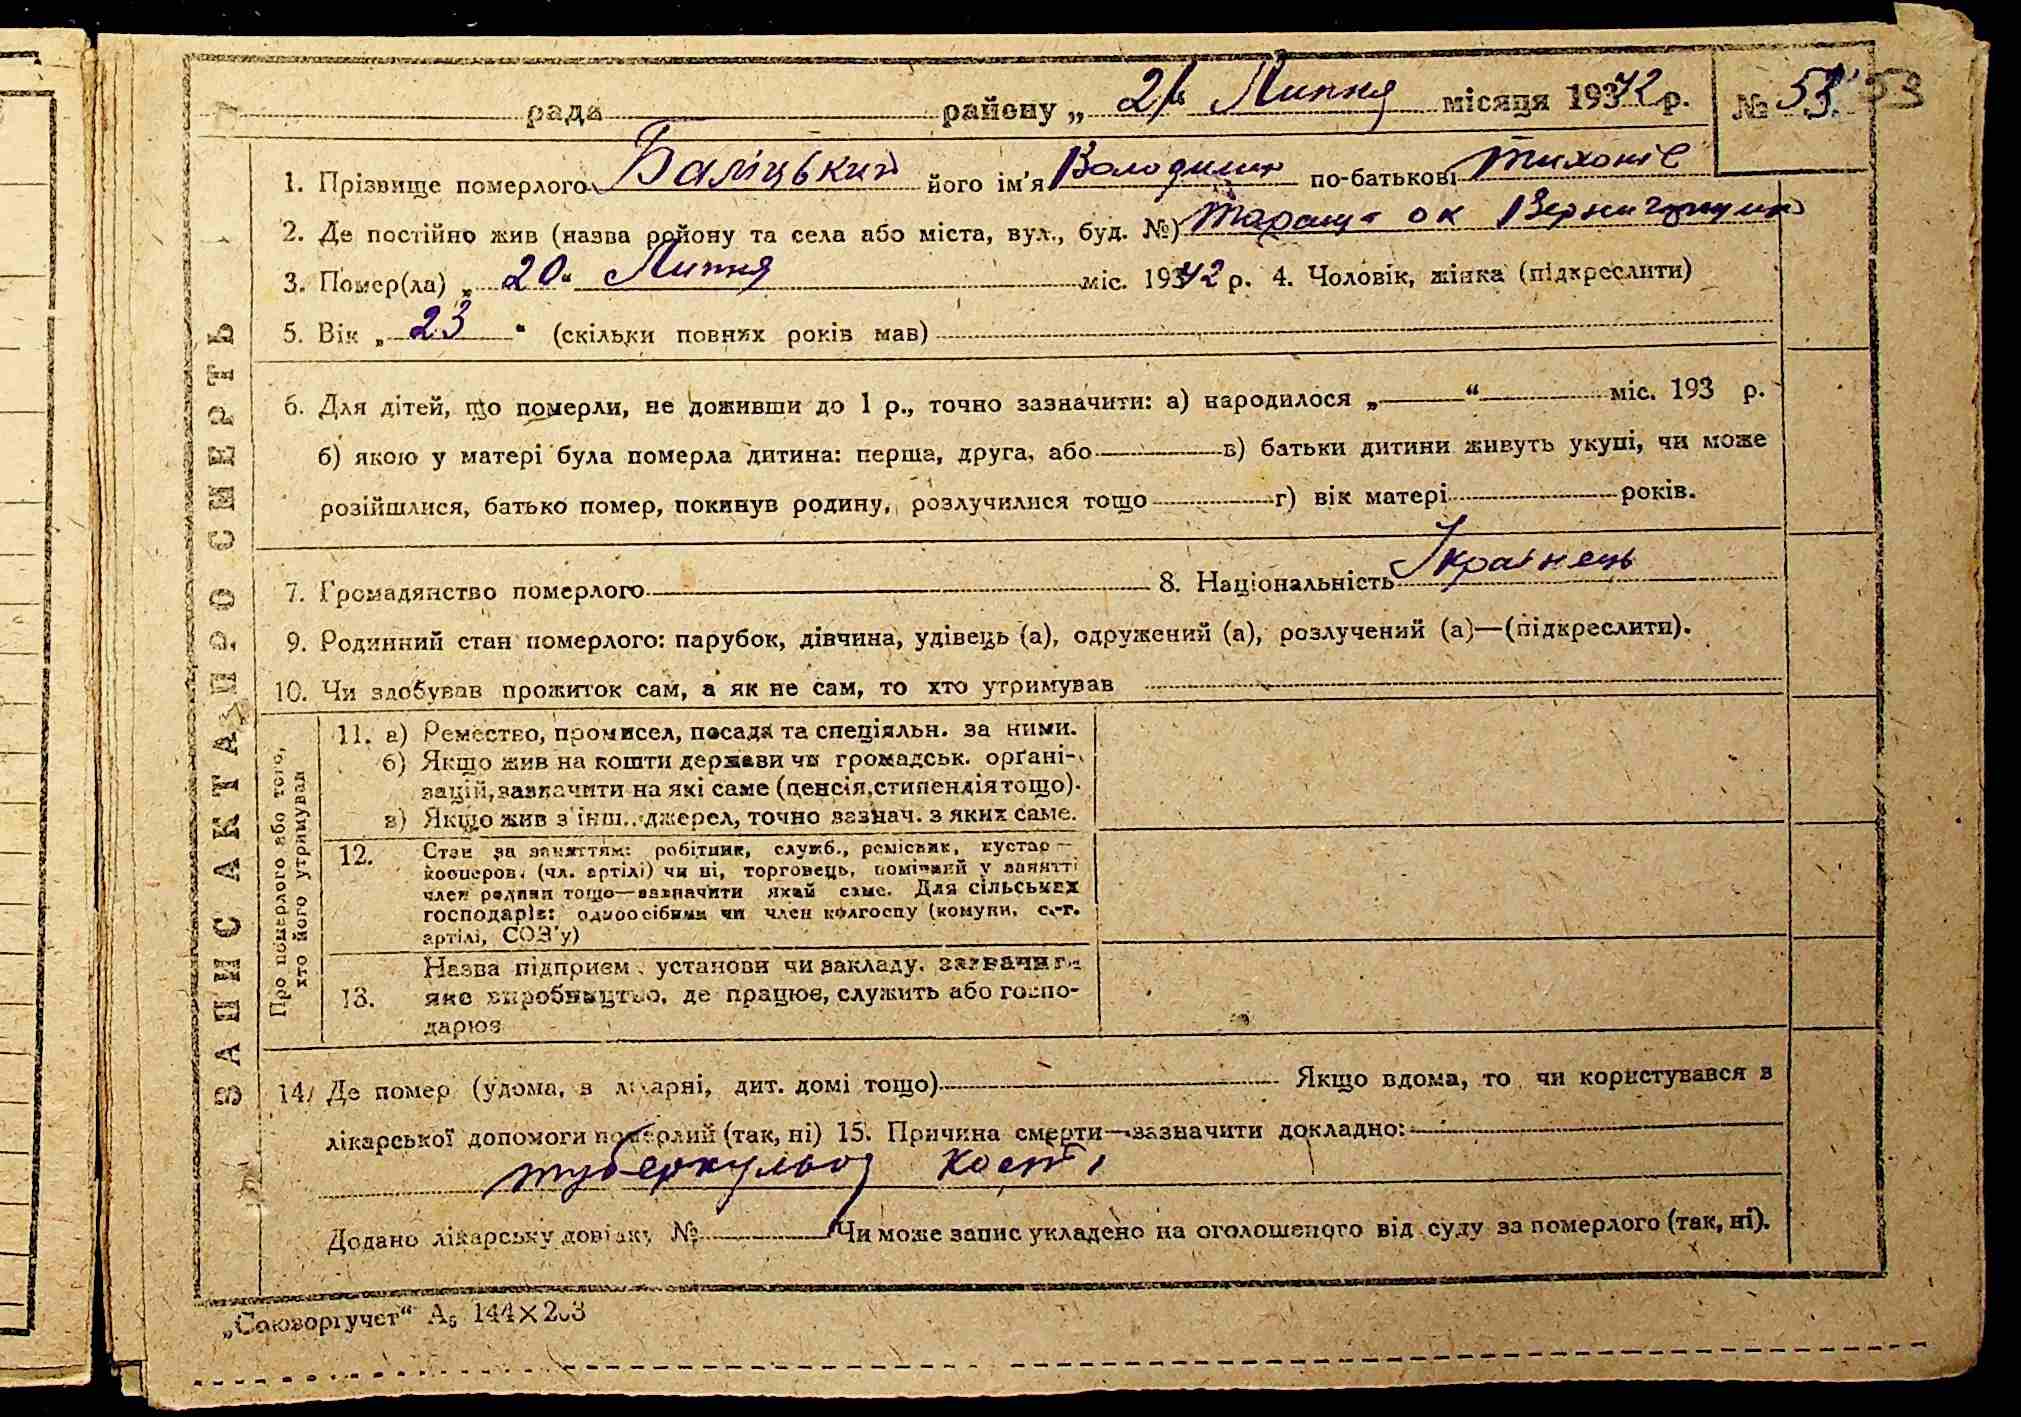 рада району „ 21 Липня місяця 1942 р. № 53 53
1. Прізвище померлого Баліцький його ім'я Володимир по-батькові Тихонів
2. Де постійно жив (назва району та села або міста, вул., буд. №) Таращ
3. Помер(ла) „ 20 “ Липня міс. 1942 р. 4. Чоловік, жінка (підкреслити)
5. Вік „ 23 “ (скільки повних років мав)
6. Для дітей, що померли, не доживши до 1 р., точно зазначити: а) народилося „ “ міс. 193 р.
б) якою у матері була померла дитина: перша, друга, або в) батьки дитини живуть укупі, чи може
розійшлися, батько помер, покинув родину, розлучилися тощо г) вік матері років.
7. Громадянство померлого 8. Національність Українець
9. Родинний стан померлого: парубок, дівчина, удівець (а), одружений (а), розлучений (а)—(підкреслити).
10. Чи здобував прожиток сам, а як не сам, то хто утримував
ЗАПИС АКТА ПРО СМЕРТЬ
Про померлого або того,
хто його утримував
11. а) Ремество, промисел, посада та спеціяльн. за ними.
б) Якщо жив на кошти держави чи громадськ. орґані-
зацій, зазначити на які саме (пенсія, стипендія тощо).
в) Якщо жив з інш. джерел, точно зазнач. з яких саме.
12. Стан за заняттям: робітник, служб., ремісник, кустар —
кооперов. (чл. артілі) чи ні, торговець, помічний у занятті
член родини тощо—зазначити який саме. Для сільських
господарів: одноосібник чи член колгоспу (комуни, с.-г.
артілі, СОЗ'у)
Назва підприєм. установи чи закладу, зазначити
13. яке виробництво, де працює, служить або госпо-
дарює
14. Де помер (удома, в лікарні, дит. домі тощо) Якщо вдома, то чи користувався в
лікарської допомоги померлий (так, ні) 15. Причина смерти—зазначити докладно:
туберкульоз кості
Додано лікарську довідку № Чи може запис укладено на оголошеного від суду за померлого (так, ні).
„Союзоргучет“ А₅ 144×203